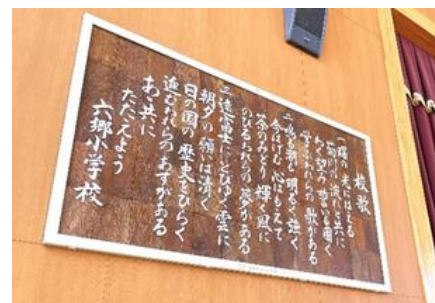 校歌
一 曙の 光にはえる
菊川の 流れと共に
わく力 誓いも固く
学ぶわれらの 歌がある
二 鳴る潮も 明るく 強く
今はげむ 心はもえて
茶のみどり 輝く風に
のびるわれらの 夢がある
三 遠富士に ゆく雲に
朝夕の 願いは清く
日の国の 歴史をひらく
進むわれらの あすがある
あゝ共に
たたえよう
六郷小学校